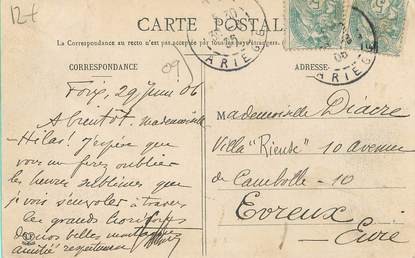 12 €
CARTE POSTALE
La Correspondance au recto n'est pas acceptée par tous les pays étrangers.
CORRESPONDANCE
ADRESSE
09
ARIEGE
ARIEGE
Foix, 29 juin 06
A bientôt, Mademoiselle
Hélas! J'espère que
vous me ferez oublier
les heures sublimes que
je vois s'envoler à travers
les grands horizons
de nos belles montagnes
amitié respectueuse
Mademoiselle Diacre
Villa "Rieuse" 10 avenue
de Cambolle - 10
Evreux
Eure